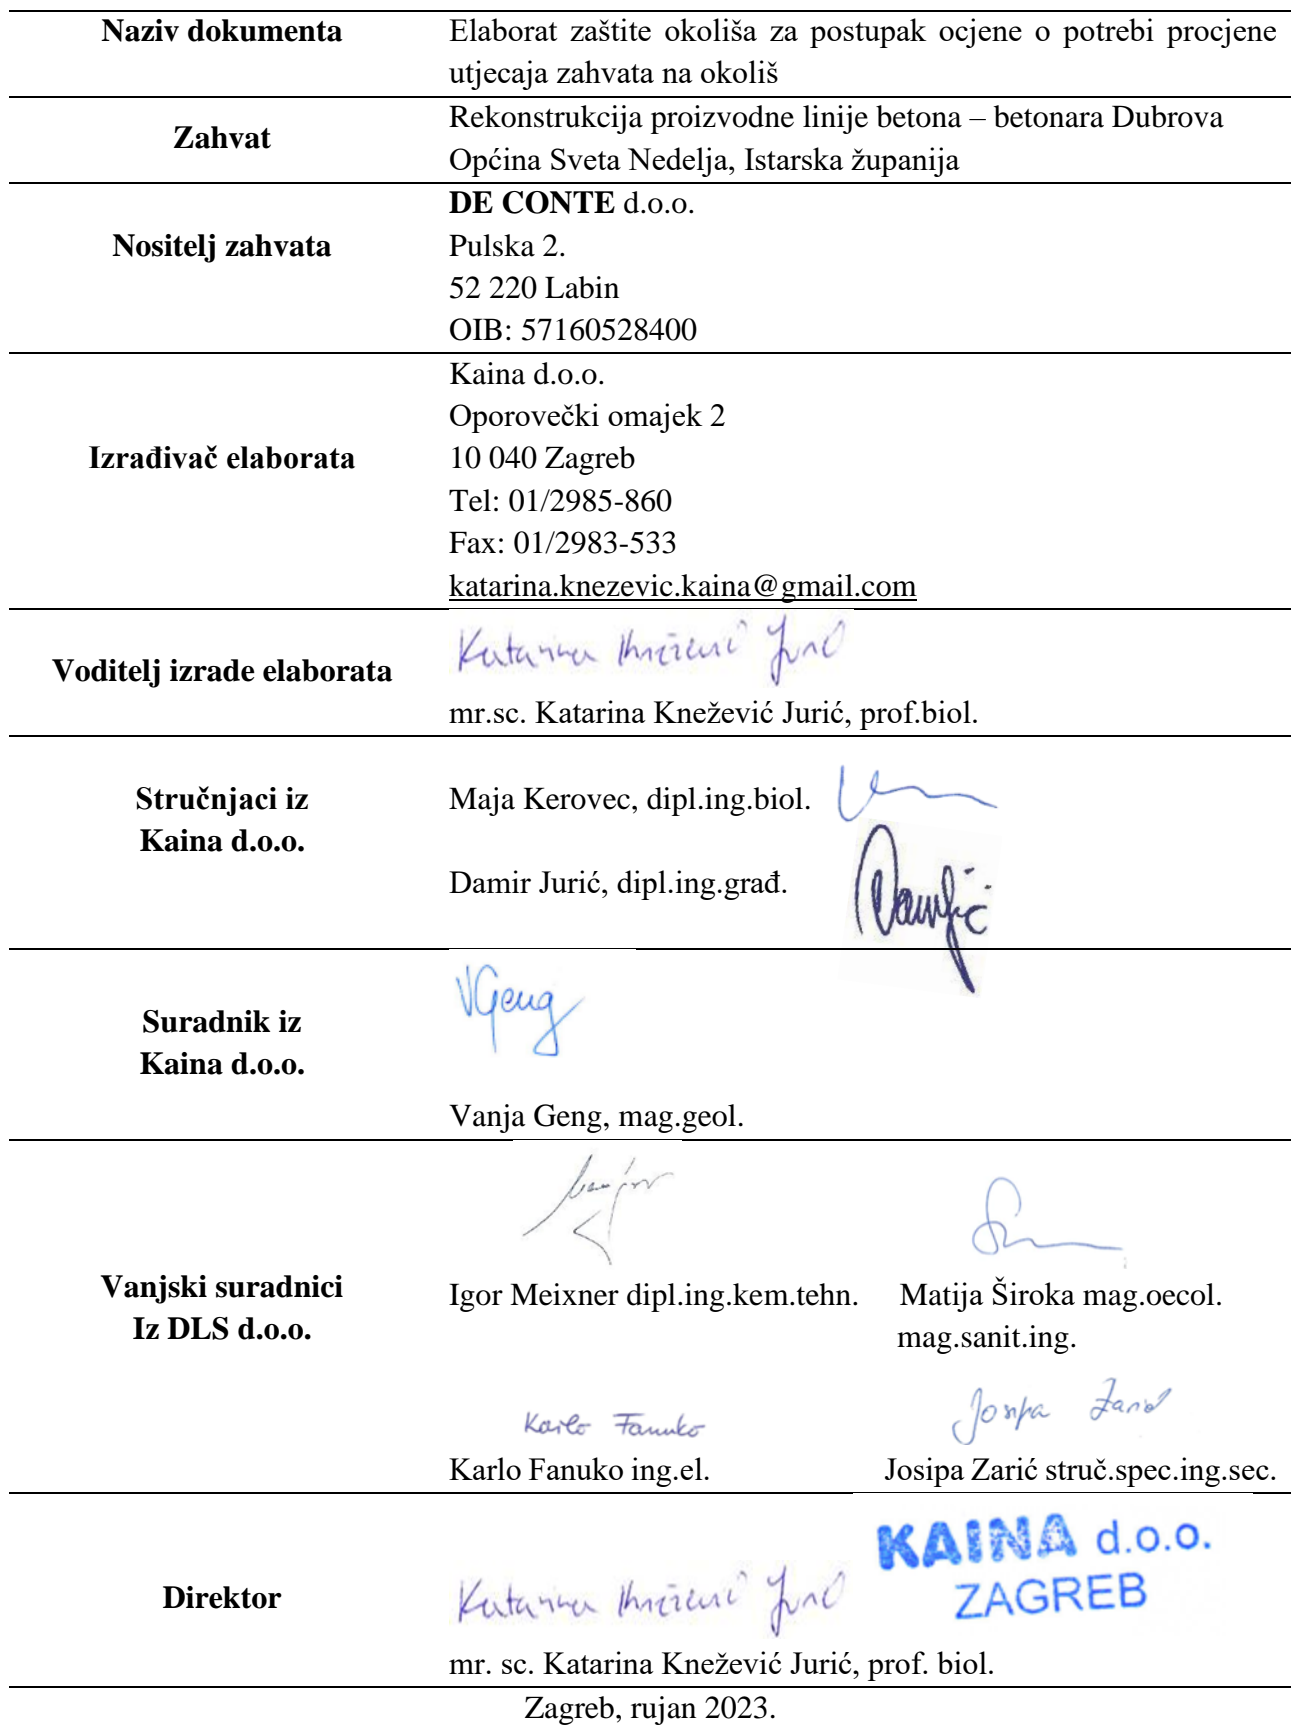 Naziv dokumenta
Elaborat zaštite okoliša za postupak ocjene o potrebi procjene
utjecaja zahvata na okoliš
Zahvat
Rekonstrukcija proizvodne linije betona – betonara Dubrova
Općina Sveta Nedelja, Istarska županija
Nositelj zahvata
DE CONTE d.o.o.
Pulska 2.
52 220 Labin
OIB: 57160528400
Izrađivač elaborata
Kaina d.o.o.
Oporovečki omajek 2
10 040 Zagreb
Tel: 01/2985-860
Fax: 01/2983-533
katarina.knezevic.kaina@gmail.com
Voditelj izrade elaborata
Katarina Knežević Jurić
mr.sc. Katarina Knežević Jurić, prof.biol.
Stručnjaci iz
Kaina d.o.o.
Maja Kerovec, dipl.ing.biol.
Damir Jurić, dipl.ing.građ.
Suradnik iz
Kaina d.o.o.
VGeng
Vanja Geng, mag.geol.
Vanjski suradnici
Iz DLS d.o.o.
Igor Meixner dipl.ing.kem.tehn.
Matija Široka mag.oecol.
mag.sanit.ing.
Karlo Fanuko
Karlo Fanuko ing.el.
Josipa Zarić
Josipa Zarić struč.spec.ing.sec.
Direktor
KAINA d.o.o.
ZAGREB
Katarina Knežević Jurić
mr. sc. Katarina Knežević Jurić, prof. biol.
Zagreb, rujan 2023.